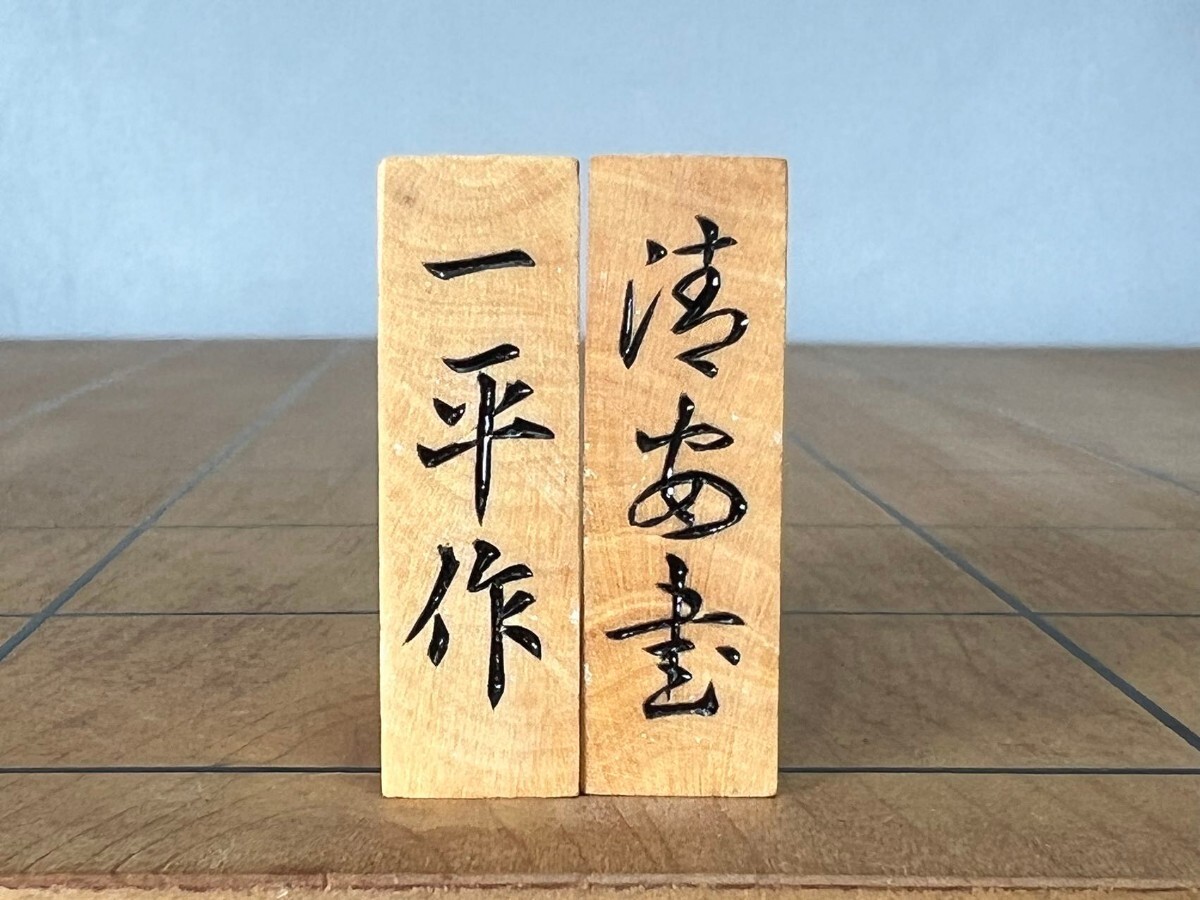 清安書
一平作